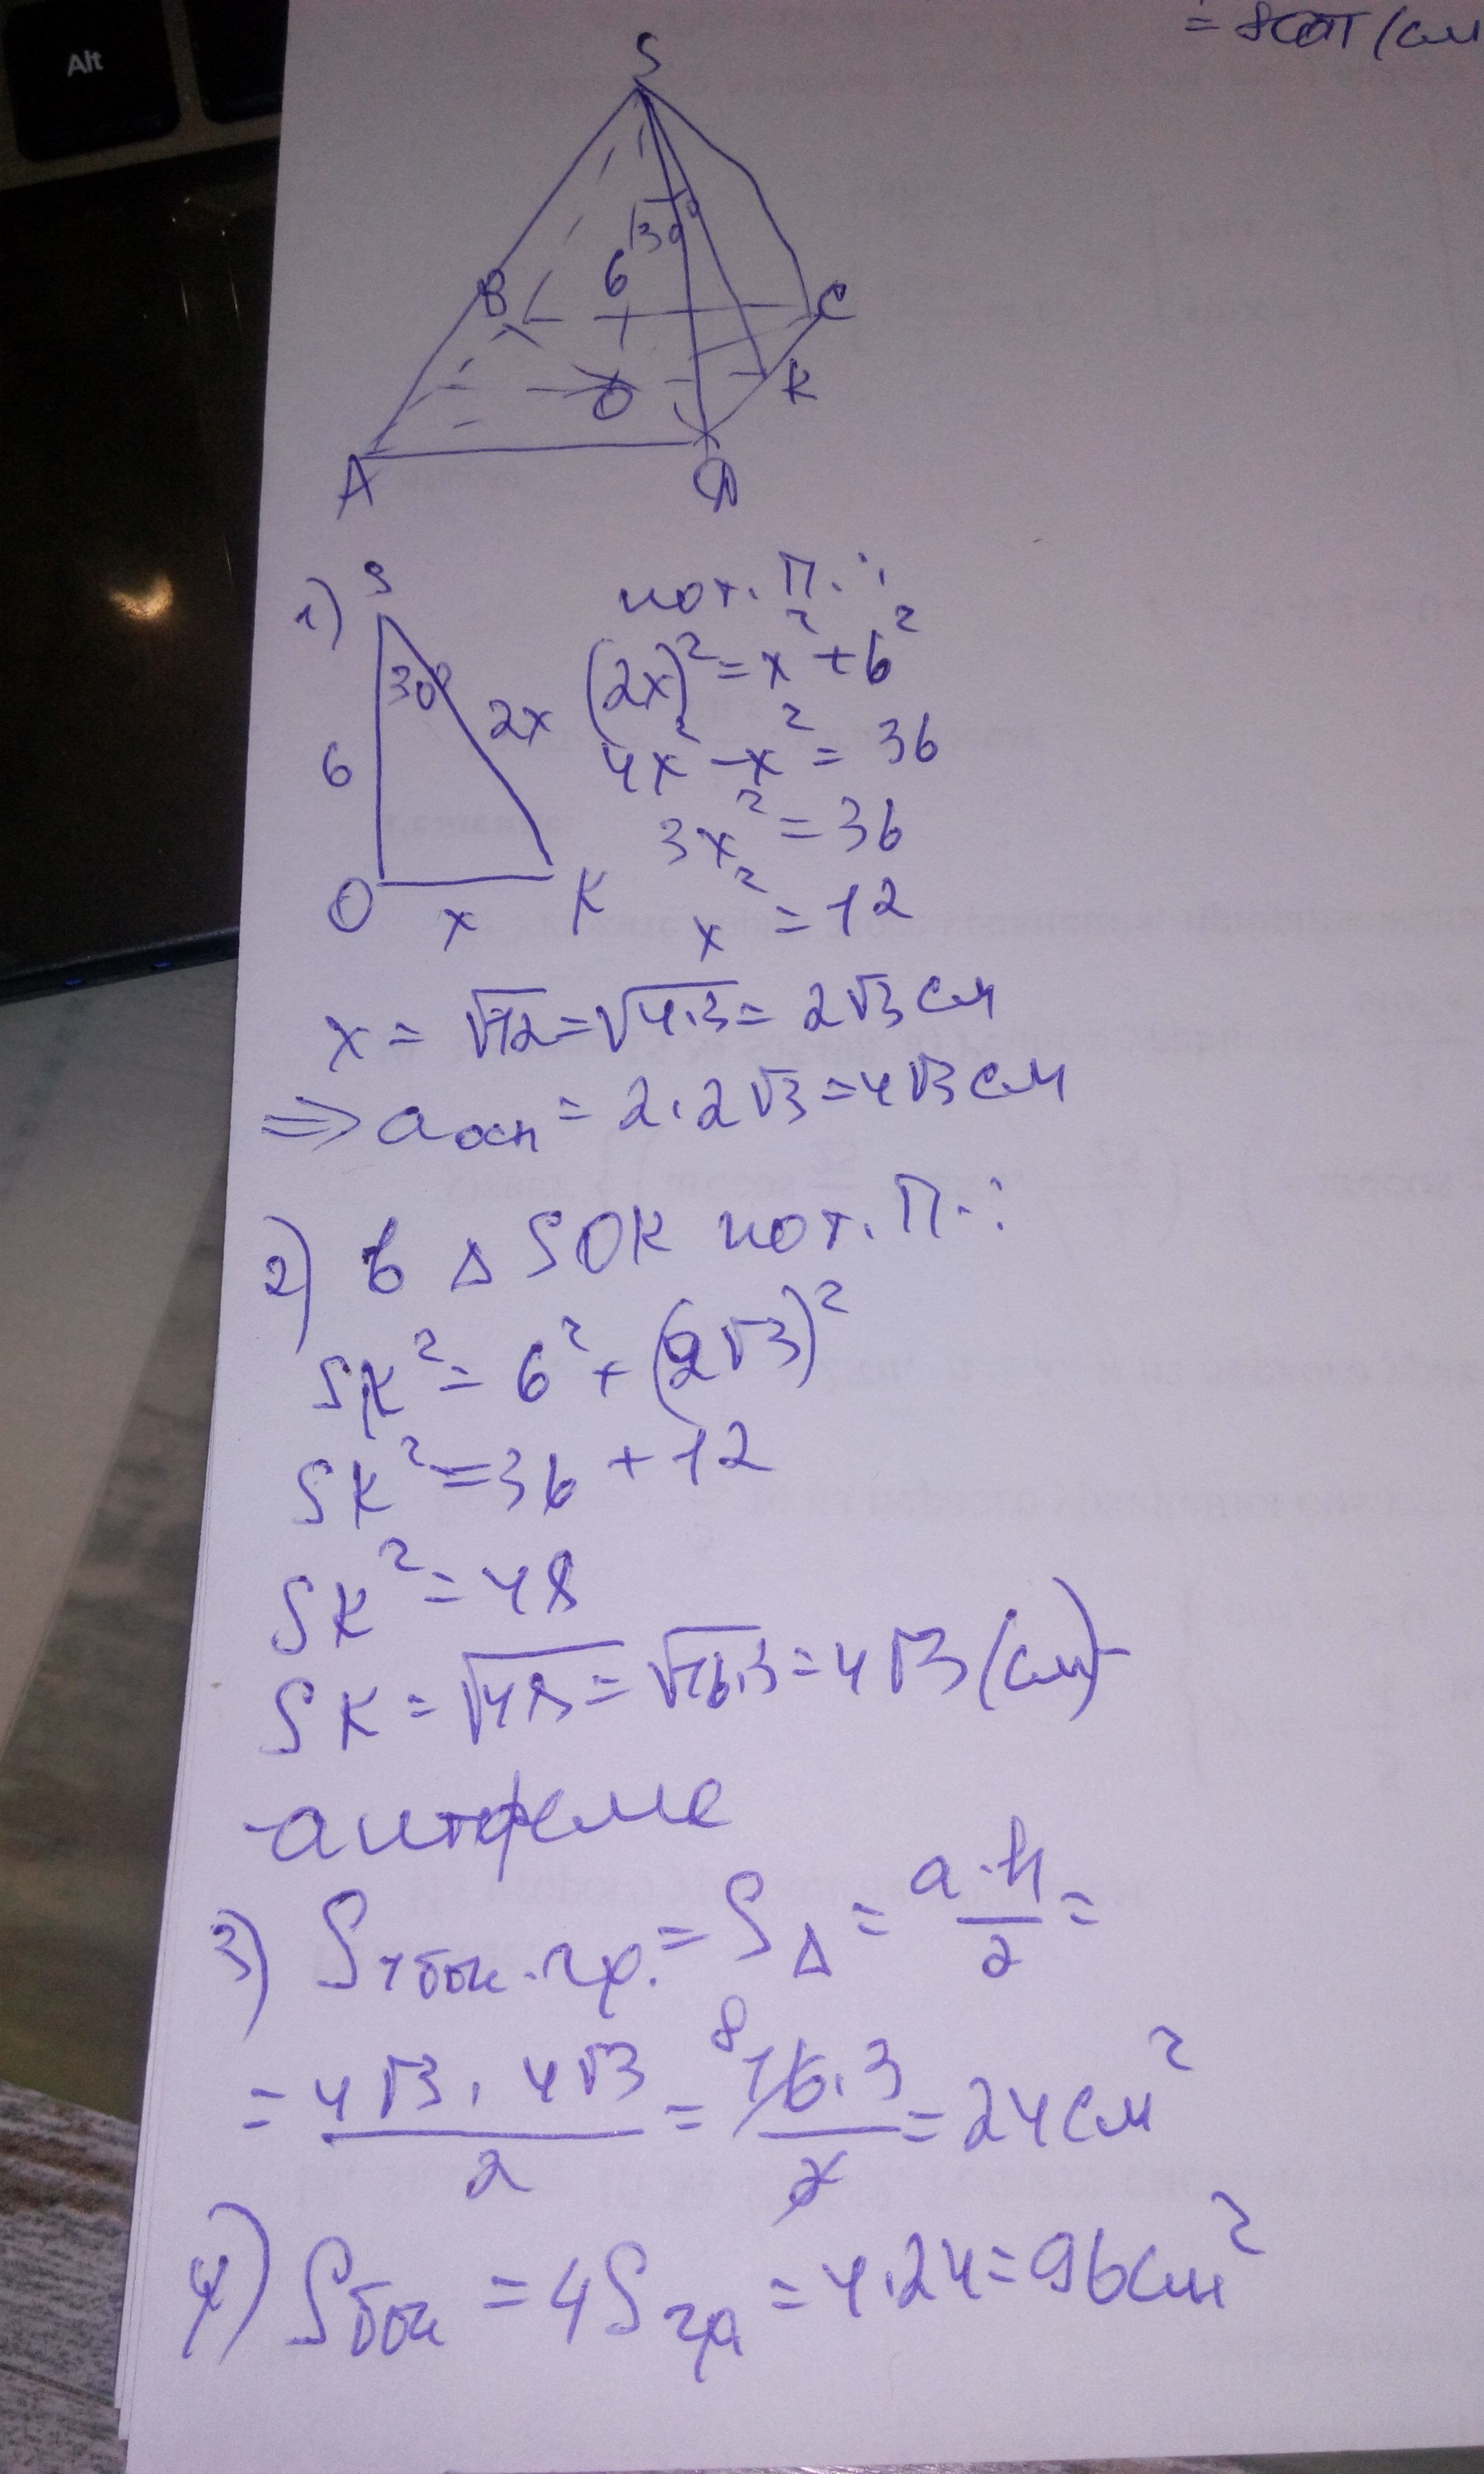 Alt
= 8 /см
S
30°
6
B
C
O
K
A
D
1) S
30°
6
2x
O
x
K
по т. П.:
(2x)² = x² + 6²
4x² - x² = 36
3x² = 36
x² = 12
x = √12 = √4.3 = 2√3 см
⇒ a осн = 2.2√3 = 4√3 см
2) в Δ SOK по т. П.:
SK² = 6² + (2√3)²
SK² = 36 + 12
SK² = 48
SK = √48 = √16.3 = 4√3 (см) -
- апофема
3) S 1 бок. гр. = S Δ = a·h/2 =
= 4√3 . 4√3 / 2 = 8 16.3 / 2 = 24 см²
4) S бок = 4S гр = 4.24 = 96 см²